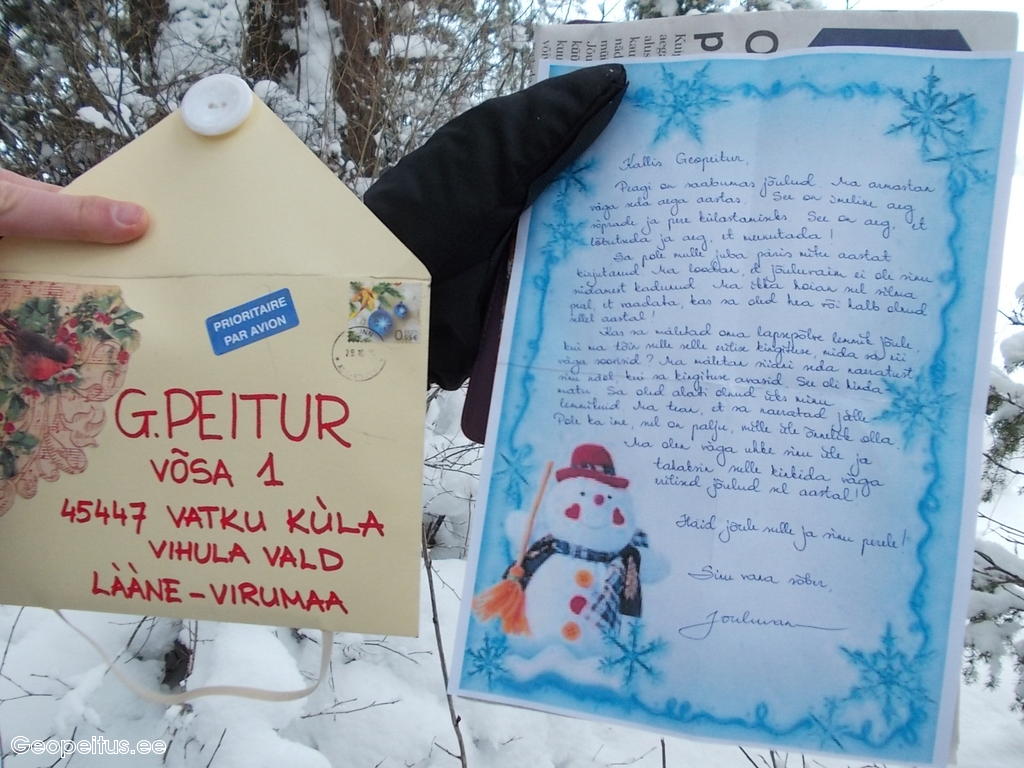 PRIORITAIRE
PAR AVION
0.45€
G.PEITUR
VÕSA 1
45447 VATKU KÜLA
VIHULA VALD
LÄÄNE-VIRUMAA
Kallis Geopeitur,
Peagi on saabumas jõulud. Ma armastan
väga seda aega aastas. See on imeline aeg
sõprade ja pere külastamiseks. See on aeg, et
lõbutseda ja aeg, et meenutada!
Sa pole mulle juba päris mitu aastat
kirjutanud. Ma loodan, et jõuluvaim ei ole sinu
südamest kadunud. Ma ikka hoian sul silma
peal, et vaadata, kas sa olud hea või halb olnud
sellel aastal!
Kas sa mäletad oma lapsepõlve lemmik jõule,
kui ma tõin sulle selle erilise kingituse, mida sa nii
väga soovisid? Ma mäletan siiani seda naeratust
sinu näol, kui sa kingituse avasid. See oli hinda
matu. Sa olud alati olnud üks minu
lemmikuid. Ma tean, et sa naeratad jälle.
Pole ka ime, sul on palju, mille üle õnnelik olla.
Ma olen väga uhke sinu üle ja
tahaksin sulle kinkida väga
erilised jõulud sel aastal!
Häid jõule sulle ja sinu perele!
Sinu vana sõber,
Jõuluvana
Geopeitus.ee